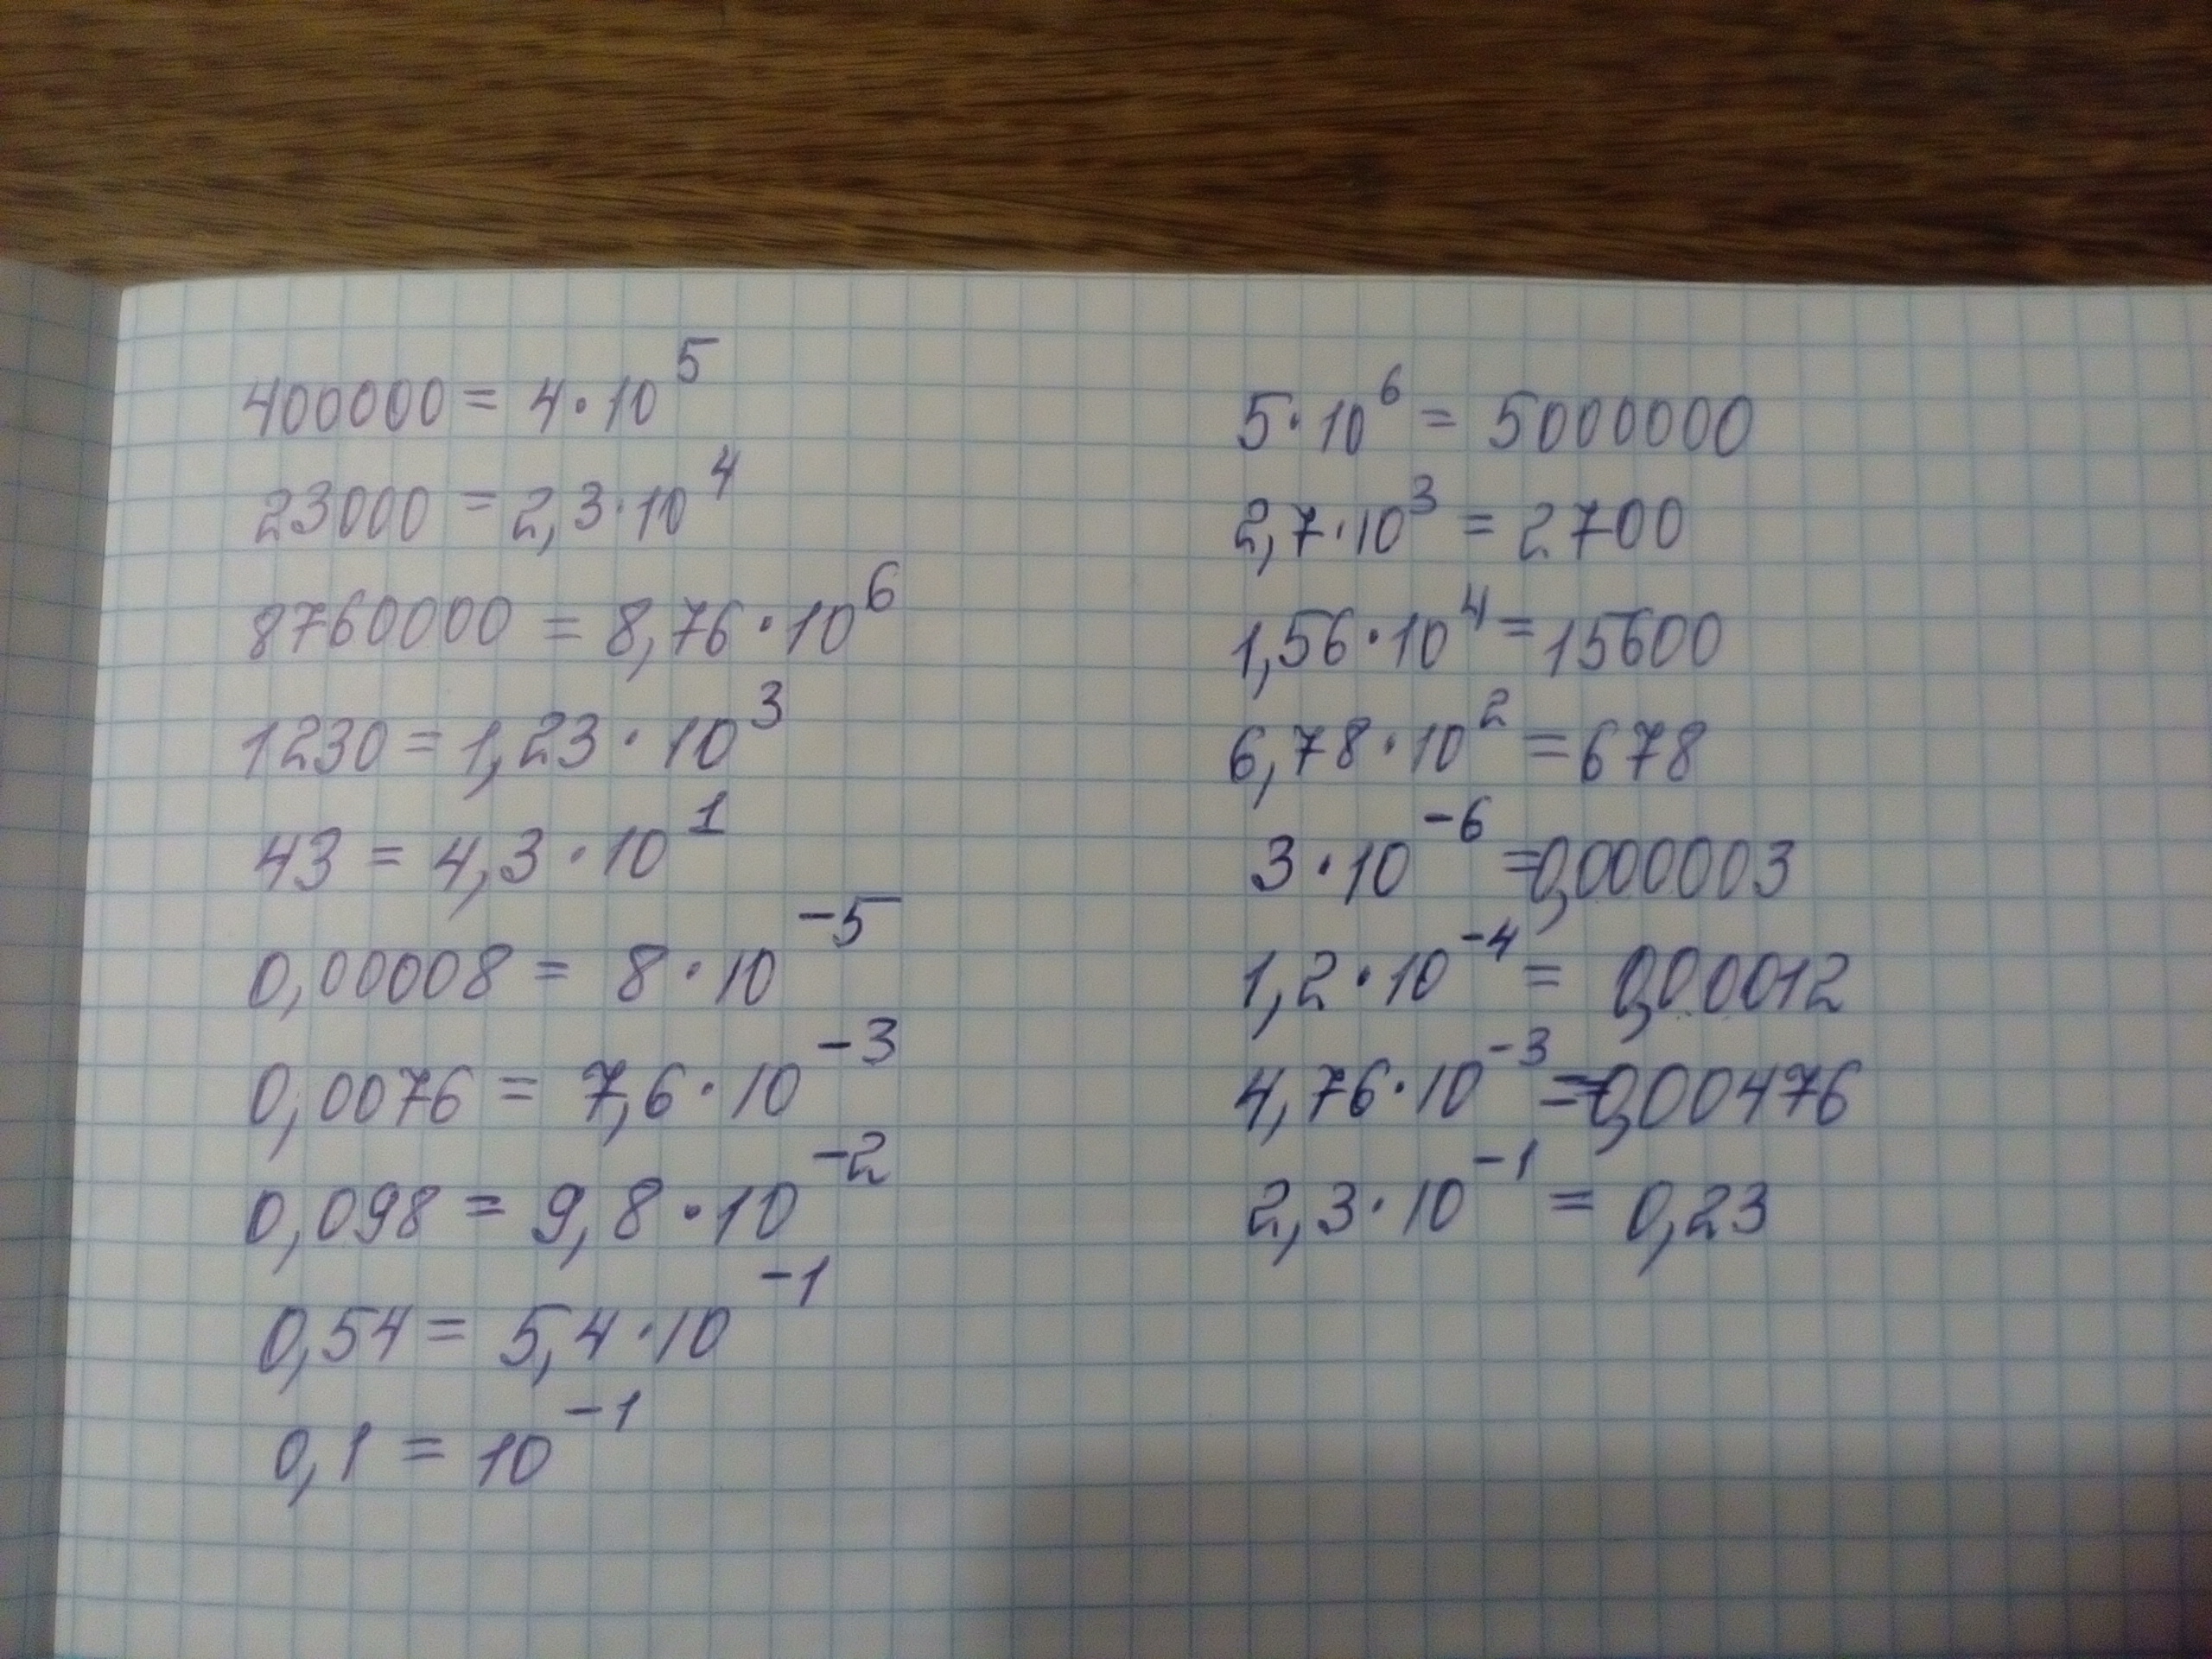 400000 = 4·10⁵
23000 = 2,3·10⁴
8760000 = 8,76·10⁶
1230 = 1,23·10³
43 = 4,3·10¹
0,00008 = 8·10⁻⁵
0,0076 = 7,6·10⁻³
0,098 = 9,8·10⁻²
0,54 = 5,4·10⁻¹
0,1 = 10⁻¹
5·10⁶ = 5000000
2,7·10³ = 2700
1,56·10⁴ = 15600
6,78·10² = 678
3·10⁻⁶ = 0,000003
1,2·10⁻⁴ = 0,00012
4,76·10⁻³ = 0,00476
2,3·10⁻¹ = 0,23